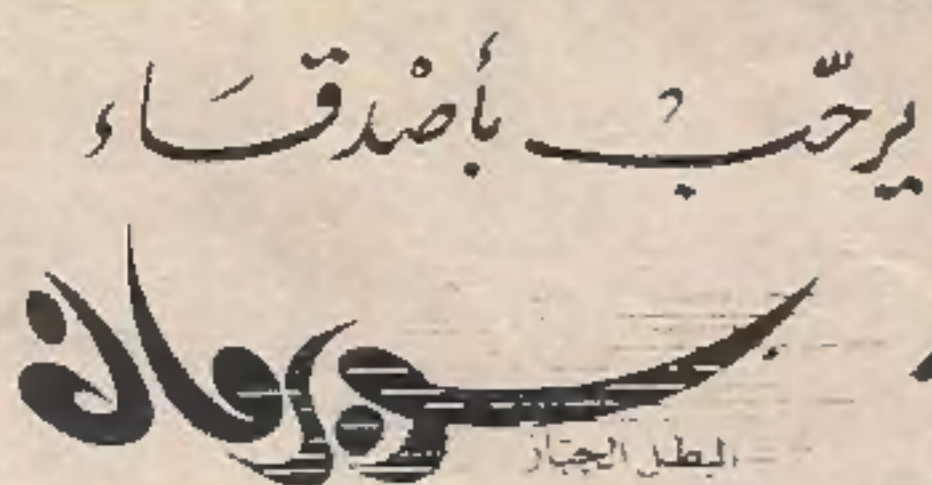 يرحّبُ بأصْدقَاء
سوبرمان
البطل الجبار